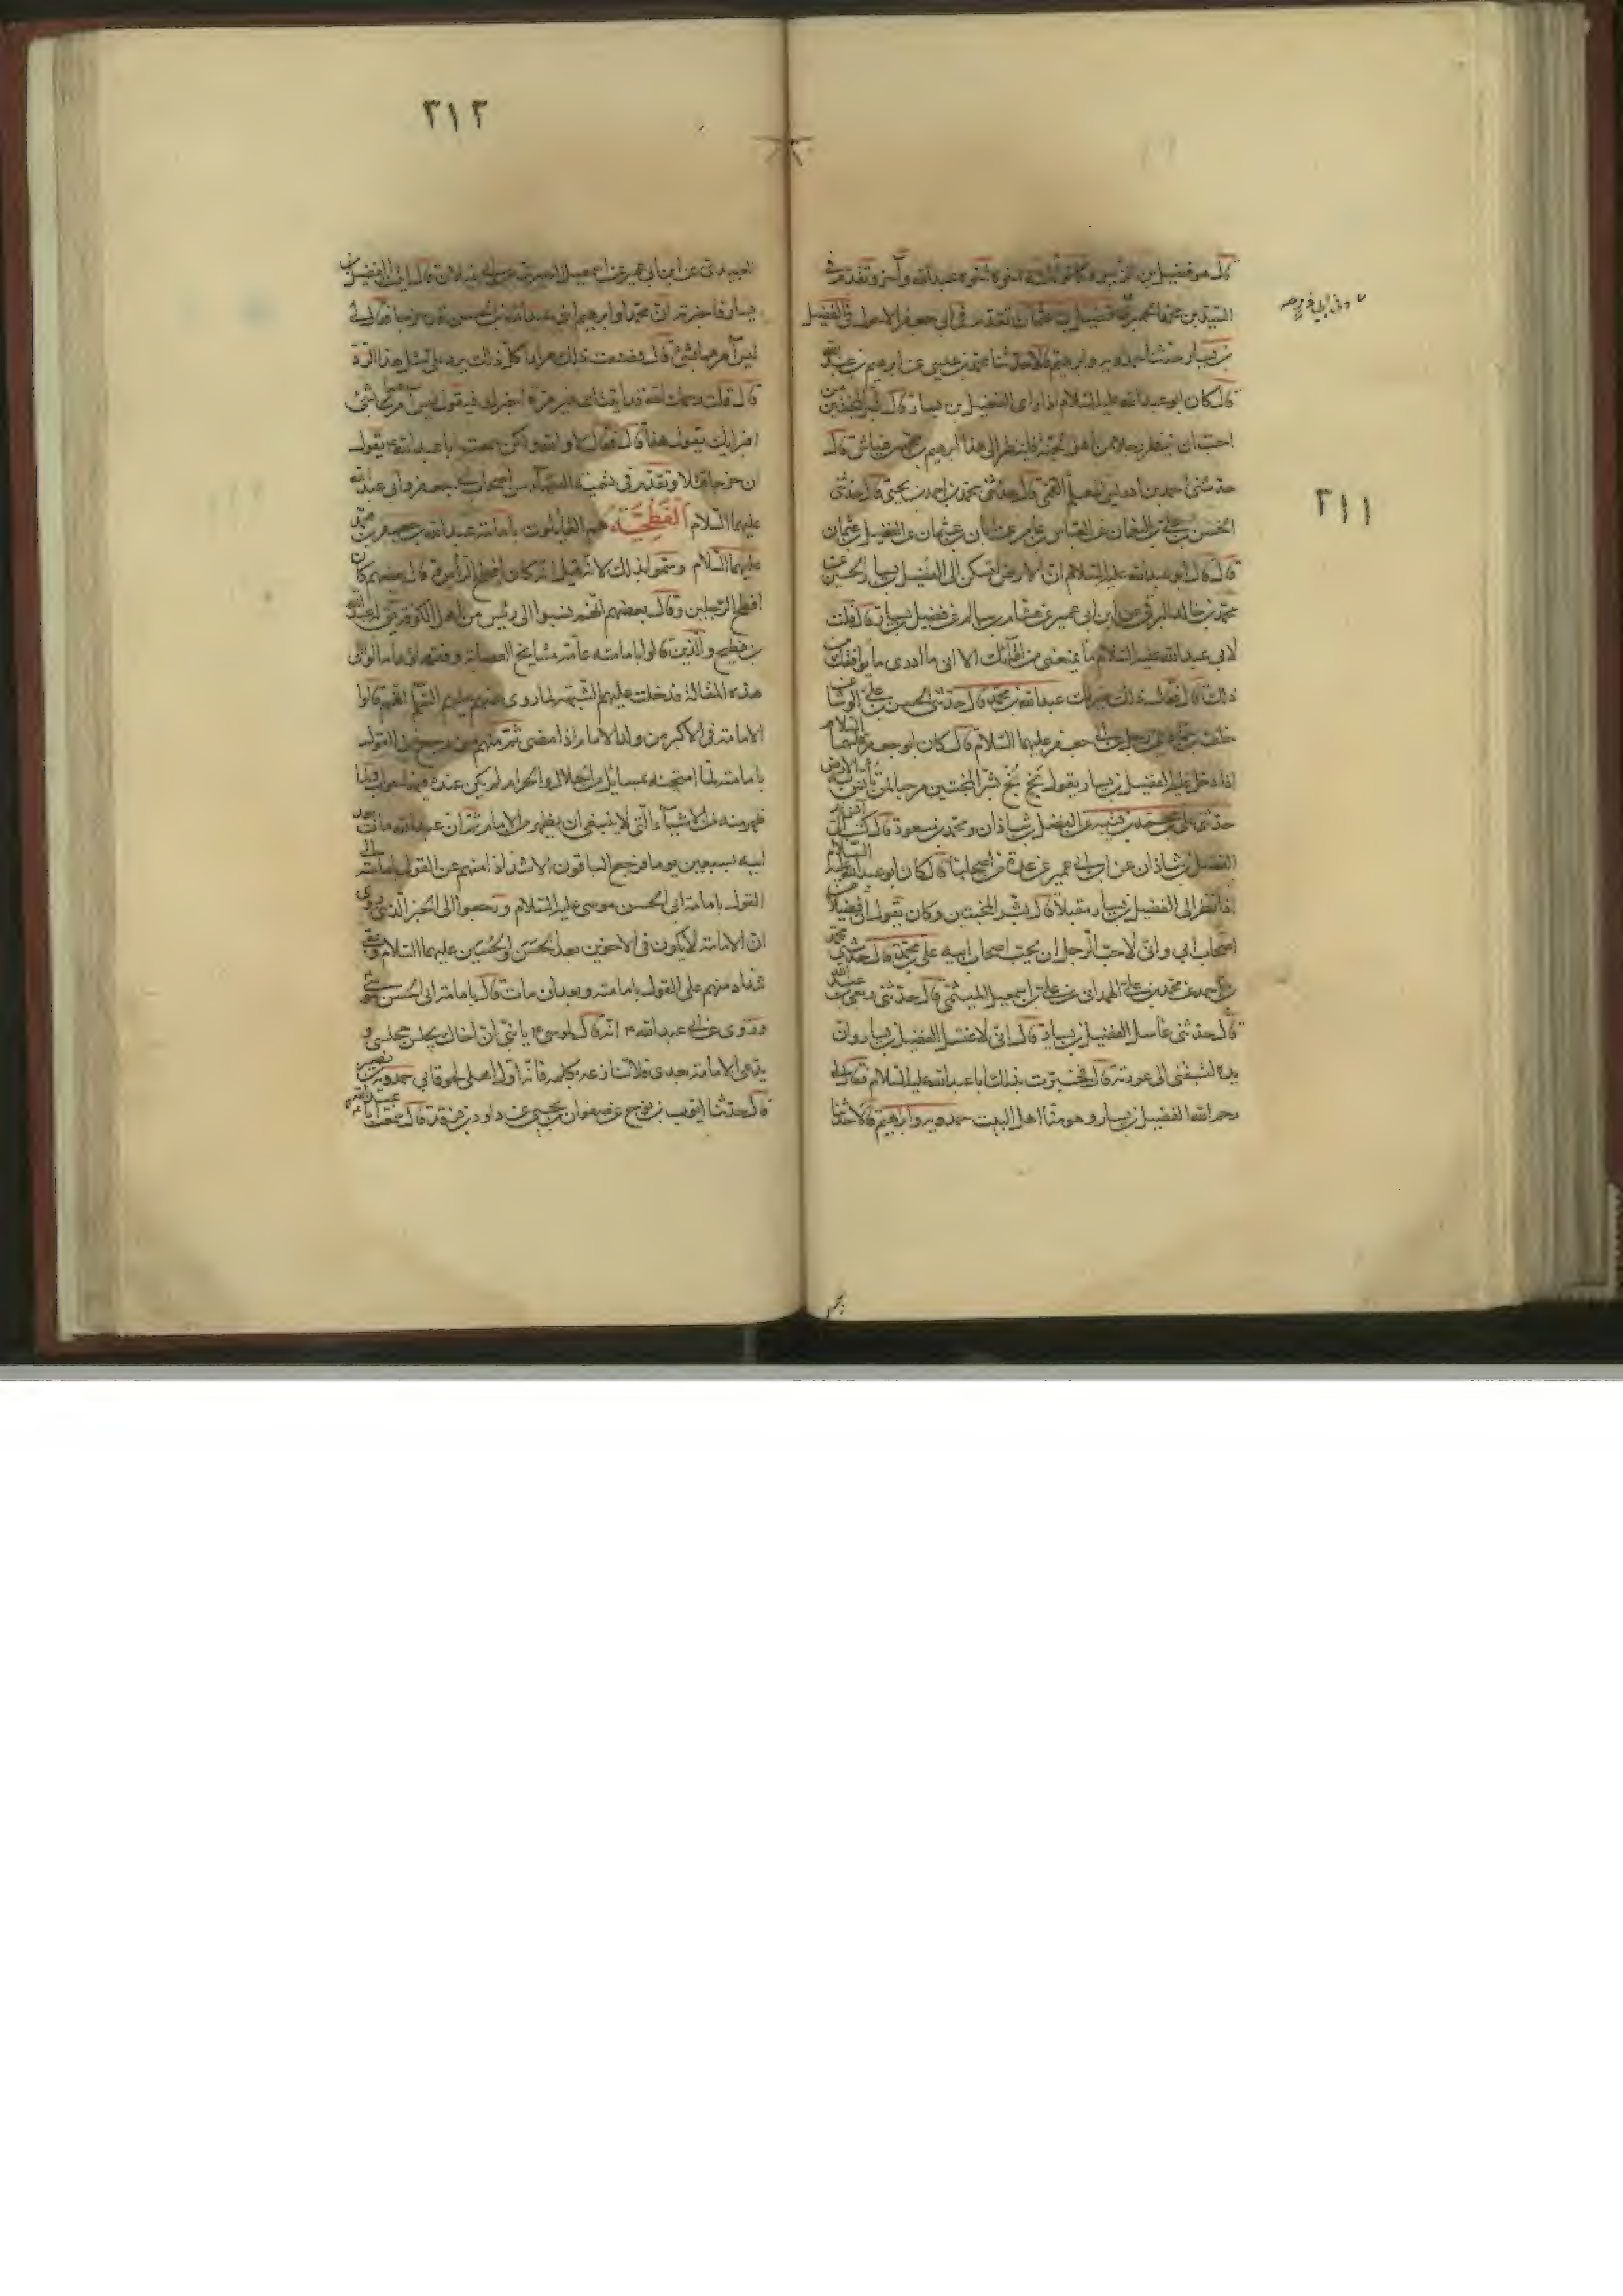 ٣١١
قال كان ابو عبدالله عليه السلام اذا راى الفضيل بن يسار قال بشر المخبتين من
احب ان ينظر رجلا من اهل الجنة فلينظر الى هذا ابرهيم بن محمد بن عباس قال
حدثنى احمد بن ادريس المعلم القمى قال حدثنى محمد بن احمد بن يحيى قال حدثنى
الحسن بن على بن النعمان عن العباس بن عامر عن ابان بن عثمان عن الفضيل بن عثمان
قال قال ابو عبدالله عليه السلام ان الارض لتسكن الى الفضيل بن يسار الحسين عن
محمد بن خالد البرقى عن ابن ابى عمير عن هشام بن سالم عن فضيل بن يسار قال قلت
لابى عبدالله عليه السلام ما يمنعنى من لقائك الا انى ما ادرى ما يوافقك من
ذلك قال فقال ذلك خير لك عبدالله بن محمد قال حدثنى الحسن بن على الوشا عن
خلف بن حماد عن رجل عن ابى جعفر عليهما السلام قال كان ابو جعفر عليهما السلام
اذا دخل عليه الفضيل بن يسار يقول بخ بخ بشر المخبتين مرحبا بمن تأنس به الارض
حدثنى على بن محمد بن قتيبة عن الفضل بن شاذان ومحمد بن مسعود قال كتب الى
الفضل بن شاذان عن ابن ابى عمير عن عدة من اصحابنا قال كان ابو عبدالله عليه السلام
اذا نظر الى الفضيل بن يسار مقبلا قال بشر المخبتين وكان يقول ان فضيلا من
اصحاب ابى وانى لاحب الرجل ان يحب اصحاب ابيه على بن محمد قال حدثنى محمد
بن احمد عن محمد بن على الهمدانى عن على بن اسمعيل الميثمى قال حدثنى ربعى بن عبدالله
قال حدثنى غاسل الفضيل بن يسار قال انى لاغسل الفضيل بن يسار وان
يده لتسبقنى الى عورته قال فخبرت بذلك ابا عبدالله عليه السلام فقال لى
رحم الله الفضيل بن يسار وهو منا اهل البيت حمدويه وابراهيم قالا حدثنا
٣١٢
العبيدى عن ابن ابى عمير عن اسمعيل البصرى عن ابى غيلان قال اتيت الفضيل بن
يسار فاخبرته ان محمدا وابرهيم ابنى عبدالله بن الحسن قد خرجا فقال لى
ليس امرهما بشئ قال فصنعت ذلك مرارا كل ذلك يرد على مثل هذا الرد
قال قلت رحمك الله قد اتيتك غير مرة اخبرك فتقول ليس امرهما بشئ
افبرأيك تقول هذا قال فقال لا والله ولكن سمعت ابا عبدالله ع يقول
ان خرجا قتلا وتقدم فى تسمية الفقهاء من اصحاب ابى جعفر وابى عبدالله
عليهما السلام الفطحية هم القائلون بامامة عبدالله بن جعفر بن محمد
عليهما السلام وسموا بذلك لانه قيل انه كان افطح الرأس وقال بعضهم كان
افطح الرجلين وقال بعضهم انهم نسبوا الى رئيس من اهل الكوفة يقال له عبدالله
بن فطيح والذين قالوا بامامته عامة مشايخ العصابة وفقهاؤها مالوا الى
هذه المقالة فدخلت عليهم الشبهة لما روى عنهم عليهم السلام انهم قالوا
الامامة فى الاكبر من ولد الامام اذا مضى ثم منهم من رجع عن القول
بامامته لما امتحنه بمسائل من الحلال والحرام لم يكن عنده فيها جواب ولما
ظهر منه من الاشياء التى لا ينبغى ان يظهر من الامام ثم ان عبدالله مات بعد
ابيه بسبعين يوما فرجع الباقون الا شذاذا منهم عن القول بامامته الى
القول بامامة ابى الحسن موسى عليه السلام ورجعوا الى الخبر الذى روى
ان الامامة لا يكون فى الاخوين بعد الحسن والحسين عليهما السلام وبقى
شذاذ منهم على القول بامامته وبعد ان مات قال بامامة ابى الحسن موسى
وروى عن ابى عبدالله ع انه قال لموسى ع يا بنى ان اخاك يجلس مجلسى و
يدعى الامامة بعدى فلا تنازعه بكلمة فانه اول اهلى لحوقا بى حمدويه بن نصير
قال حدثنا ايوب بن نوح عن صفوان بن يحيى عن داود بن فرقد قال سمعت ابا عبدالله ع